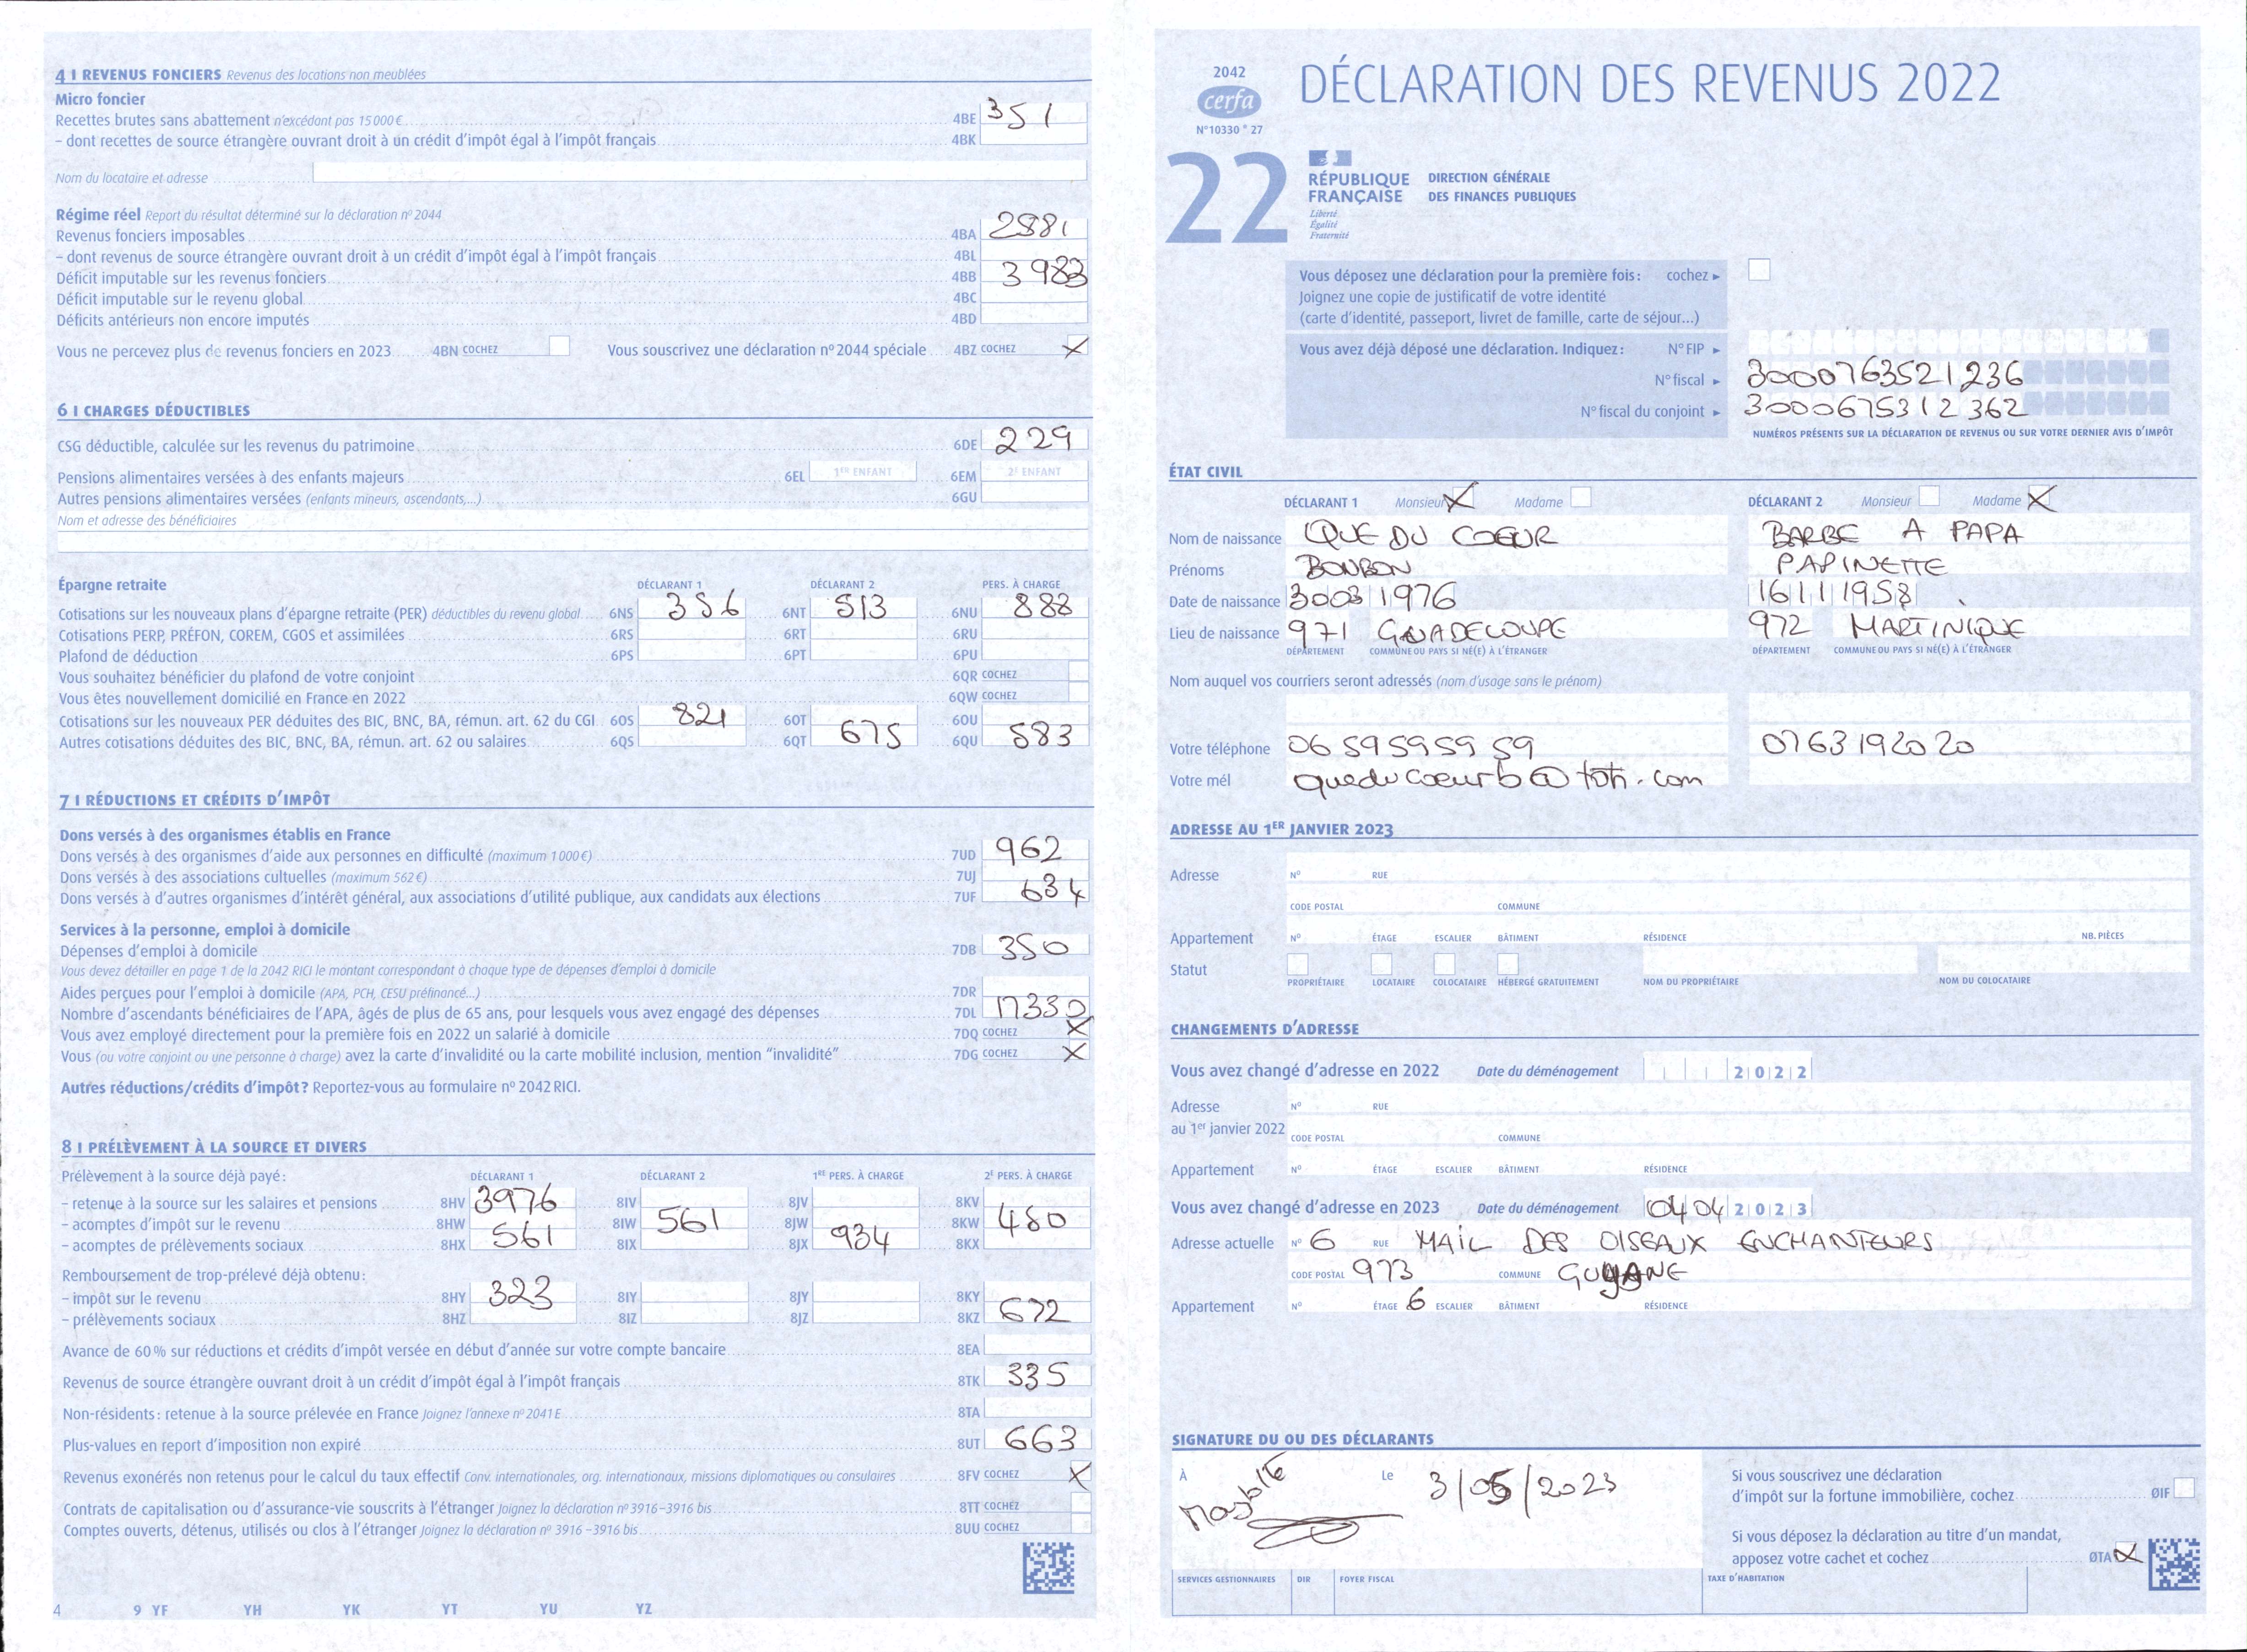 4 I REVENUS FONCIERS Revenus des locations non meublées
Micro foncier
Recettes brutes sans abattement n'excédant pas 15 000 € 4BE 351
– dont recettes de source étrangère ouvrant droit à un crédit d'impôt égal à l'impôt français 4BK
Nom du locataire et adresse
Régime réel Report du résultat déterminé sur la déclaration nº 2044
Revenus fonciers imposables 4BA 2881
– dont revenus de source étrangère ouvrant droit à un crédit d'impôt égal à l'impôt français 4BL
Déficit imputable sur les revenus fonciers 4BB 3983
Déficit imputable sur le revenu global 4BC
Déficits antérieurs non encore imputés 4BD
Vous ne percevez plus de revenus fonciers en 2023 4BN COCHEZ Vous souscrivez une déclaration nº 2044 spéciale 4BZ COCHEZ X
6 I CHARGES DÉDUCTIBLES
CSG déductible, calculée sur les revenus du patrimoine 6DE 229
Pensions alimentaires versées à des enfants majeurs 6EL 1ER ENFANT 6EM 2E ENFANT
Autres pensions alimentaires versées (enfants mineurs, ascendants,...) 6GU
Nom et adresse des bénéficiaires
Épargne retraite DÉCLARANT 1 DÉCLARANT 2 PERS. À CHARGE
Cotisations sur les nouveaux plans d'épargne retraite (PER) déductibles du revenu global 6NS 356 6NT 513 6NU 888
Cotisations PERP, PRÉFON, COREM, CGOS et assimilées 6RS 6RT 6RU
Plafond de déduction 6PS 6PT 6PU
Vous souhaitez bénéficier du plafond de votre conjoint 6QR COCHEZ
Vous êtes nouvellement domicilié en France en 2022 6QW COCHEZ
Cotisations sur les nouveaux PER déduites des BIC, BNC, BA, rémun. art. 62 du CGI 6OS 821 6OT 6OU
Autres cotisations déduites des BIC, BNC, BA, rémun. art. 62 ou salaires 6QS 6QT 675 6QU 583
7 I RÉDUCTIONS ET CRÉDITS D'IMPÔT
Dons versés à des organismes établis en France
Dons versés à des organismes d'aide aux personnes en difficulté (maximum 1 000 €) 7UD 962
Dons versés à des associations cultuelles (maximum 562 €) 7UJ
Dons versés à d'autres organismes d'intérêt général, aux associations d'utilité publique, aux candidats aux élections 7UF 634
Services à la personne, emploi à domicile
Dépenses d'emploi à domicile 7DB 350
Vous devez détailler en page 1 de la 2042 RICI le montant correspondant à chaque type de dépenses d'emploi à domicile
Aides perçues pour l'emploi à domicile (APA, PCH, CESU préfinancé...) 7DR
Nombre d'ascendants bénéficiaires de l'APA, âgés de plus de 65 ans, pour lesquels vous avez engagé des dépenses 7DL 17330
Vous avez employé directement pour la première fois en 2022 un salarié à domicile 7DQ COCHEZ X
Vous (ou votre conjoint ou une personne à charge) avez la carte d'invalidité ou la carte mobilité inclusion, mention "invalidité" 7DG COCHEZ X
Autres réductions/crédits d'impôt ? Reportez-vous au formulaire nº 2042 RICI.
8 I PRÉLÈVEMENT À LA SOURCE ET DIVERS
Prélèvement à la source déjà payé : DÉCLARANT 1 DÉCLARANT 2 1RE PERS. À CHARGE 2E PERS. À CHARGE
– retenue à la source sur les salaires et pensions 8HV 3976 8IV 8JV 8KV
– acomptes d'impôt sur le revenu 8HW 8IW 561 8JW 8KW 480
– acomptes de prélèvements sociaux 8HX 561 8IX 8JX 934 8KX
Remboursement de trop-prélevé déjà obtenu :
– impôt sur le revenu 8HY 323 8IY 8JY 8KY
– prélèvements sociaux 8HZ 8IZ 8JZ 8KZ 672
Avance de 60 % sur réductions et crédits d'impôt versée en début d'année sur votre compte bancaire 8EA
Revenus de source étrangère ouvrant droit à un crédit d'impôt égal à l'impôt français 8TK 335
Non-résidents : retenue à la source prélevée en France Joignez l'annexe nº 2041 E 8TA
Plus-values en report d'imposition non expiré 8UT 663
Revenus exonérés non retenus pour le calcul du taux effectif Conv. internationales, org. internationaux, missions diplomatiques ou consulaires 8FV COCHEZ X
Contrats de capitalisation ou d'assurance-vie souscrits à l'étranger Joignez la déclaration nº 3916–3916 bis 8TT COCHEZ
Comptes ouverts, détenus, utilisés ou clos à l'étranger Joignez la déclaration nº 3916 –3916 bis 8UU COCHEZ
4 9 YF YH YK YT YU YZ
2042
cerfa
N° 10330 * 27
DÉCLARATION DES REVENUS 2022
22
RÉPUBLIQUE FRANÇAISE
Liberté
Égalité
Fraternité
DIRECTION GÉNÉRALE
DES FINANCES PUBLIQUES
Vous déposez une déclaration pour la première fois : cochez ►
Joignez une copie de justificatif de votre identité
(carte d'identité, passeport, livret de famille, carte de séjour...)
Vous avez déjà déposé une déclaration. Indiquez : N° FIP ►
N° fiscal ► 3000763521236
N° fiscal du conjoint ► 3000675312362
NUMÉROS PRÉSENTS SUR LA DÉCLARATION DE REVENUS OU SUR VOTRE DERNIER AVIS D'IMPÔT
ÉTAT CIVIL
DÉCLARANT 1 Monsieur X Madame DÉCLARANT 2 Monsieur Madame X
Nom de naissance QUE DU COEUR BARBE A PAPA
Prénoms BONBON PAPINETTE
Date de naissance 30031976 16111958
Lieu de naissance 971 GUADELOUPE 972 MARTINIQUE
DÉPARTEMENT COMMUNE OU PAYS SI NÉ(E) À L'ÉTRANGER DÉPARTEMENT COMMUNE OU PAYS SI NÉ(E) À L'ÉTRANGER
Nom auquel vos courriers seront adressés (nom d'usage sans le prénom)
Votre téléphone 06 59 59 59 59 0763192020
Votre mél queducoeurb@toti.com
ADRESSE AU 1ER JANVIER 2023
Adresse Nº RUE
CODE POSTAL COMMUNE
Appartement Nº ÉTAGE ESCALIER BÂTIMENT RÉSIDENCE NB. PIÈCES
Statut
PROPRIÉTAIRE LOCATAIRE COLOCATAIRE HÉBERGÉ GRATUITEMENT NOM DU PROPRIÉTAIRE NOM DU COLOCATAIRE
CHANGEMENTS D'ADRESSE
Vous avez changé d'adresse en 2022 Date du déménagement 2022
Adresse Nº RUE
au 1er janvier 2022 CODE POSTAL COMMUNE
Appartement Nº ÉTAGE ESCALIER BÂTIMENT RÉSIDENCE
Vous avez changé d'adresse en 2023 Date du déménagement 04 04 2023
Adresse actuelle Nº 6 RUE MAIL DES OISEAUX ENCHANTEURS
CODE POSTAL 973 COMMUNE GUYANE
Appartement Nº ÉTAGE 6 ESCALIER BÂTIMENT RÉSIDENCE
SIGNATURE DU OU DES DÉCLARANTS
À Le 3/05/2023
Si vous souscrivez une déclaration
d'impôt sur la fortune immobilière, cochez ØIF
Si vous déposez la déclaration au titre d'un mandat,
apposez votre cachet et cochez ØTA X
SERVICES GESTIONNAIRES DIR FOYER FISCAL TAXE D'HABITATION